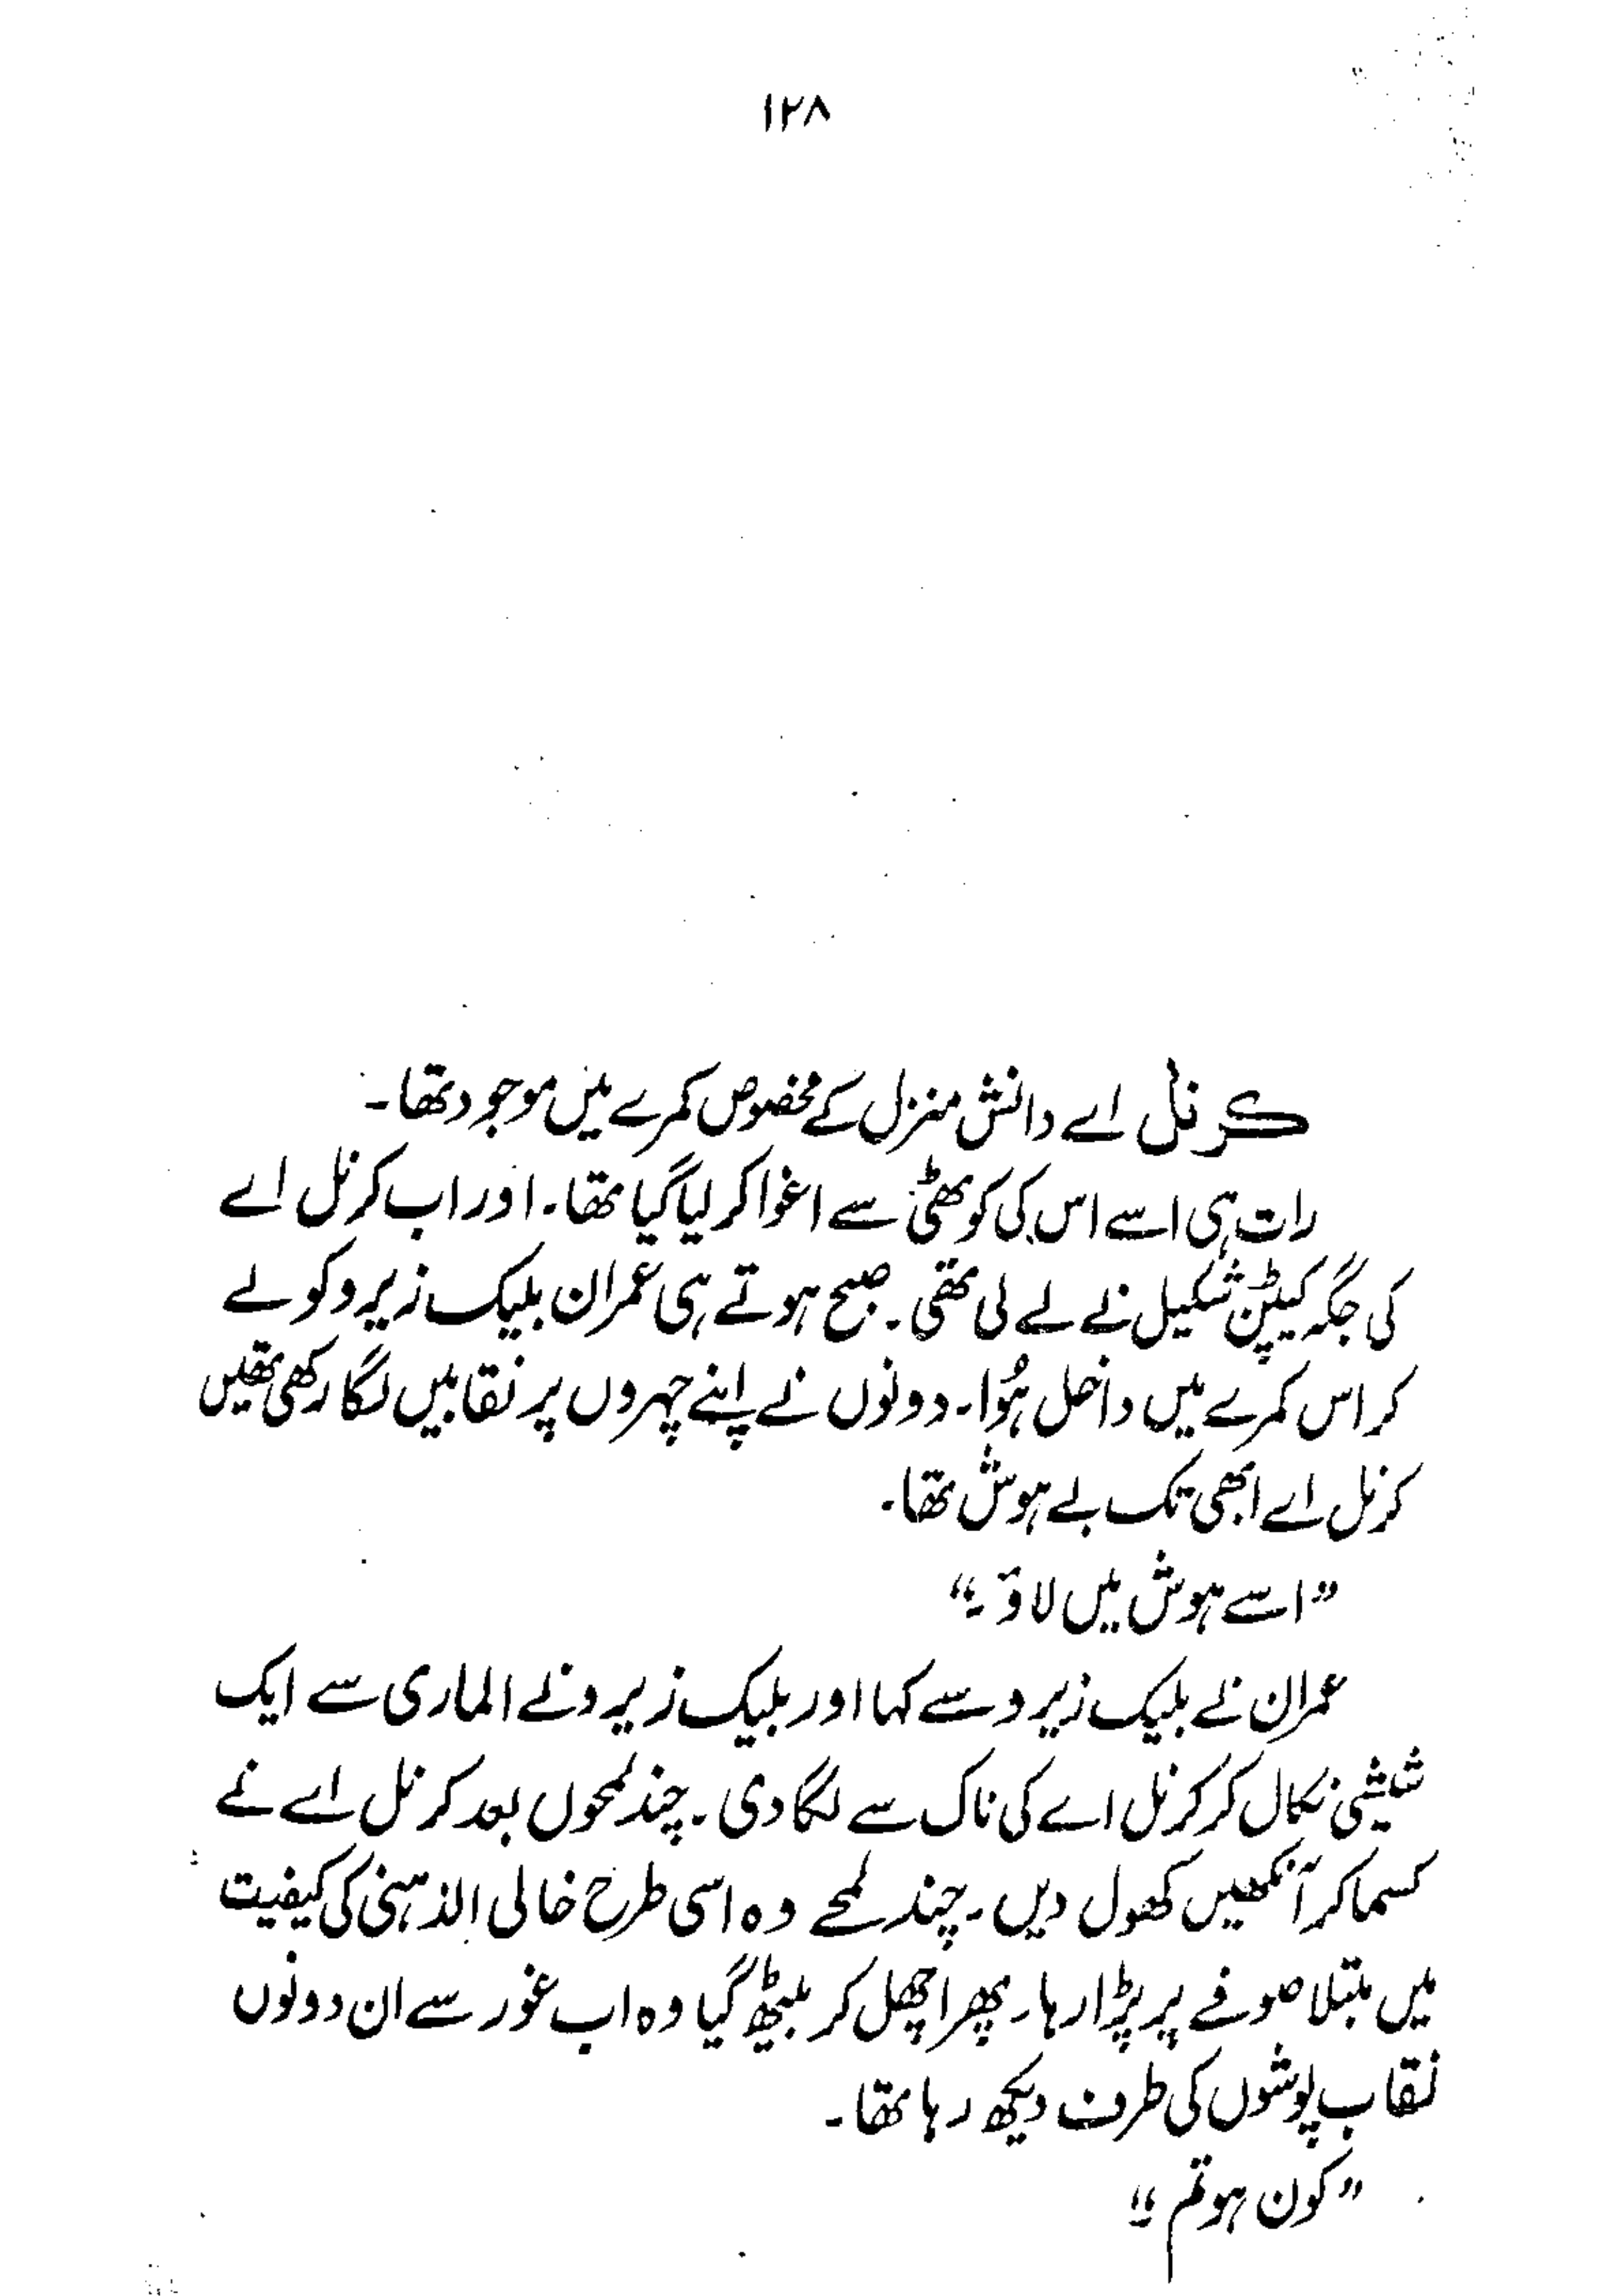 ۱۲۸
کرنل اے دانش منزل کے مخصوص کمرے میں موجود تھا۔
رات ہی اسے اس کی کوٹھی سے اغوا کر لیا گیا تھا۔ اور اب کرنل اے
کی جگہ کیپٹن شکیل نے لے لی تھی۔ صبح ہوتے ہی عمران بلیک زیرو کو لے
کر اس کمرے میں داخل ہُوا۔ دونوں نے اپنے چہروں پر نقابیں لگا رکھی تھیں
کرنل اے ابھی تک بے ہوش تھا۔
”اسے ہوش میں لاؤ۔“
عمران نے بلیک زیرو سے کہا اور بلیک زیرو نے الماری سے ایک
شیشی نکال کر کرنل اے کی ناک سے لگا دی۔ چند لمحوں بعد کرنل اے نے
کسمسا کر آنکھیں کھول دیں۔ چند لمحے وہ اسی طرح خالی الذہنی کی کیفیت
میں مبتلا صوفے پر پڑا رہا۔ پھر اچھل کر بیٹھ گیا وہ اب غور سے ان دونوں
نقاب پوشوں کی طرف دیکھ رہا تھا۔
”کون ہو تم۔“